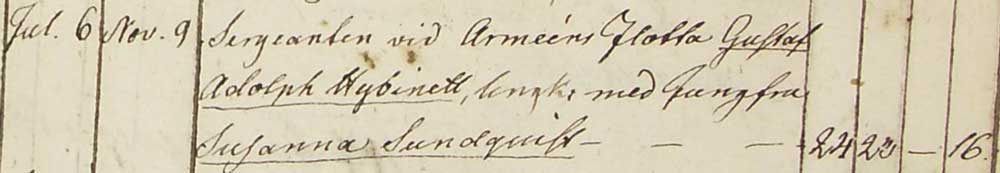 Jul. 6 Nov. 9 Sergeanten vid Arméens Flotta Gustaf
Adolph Hybinett, med Jungfru
Susanna Sundquist - - - 24 23 - 16.